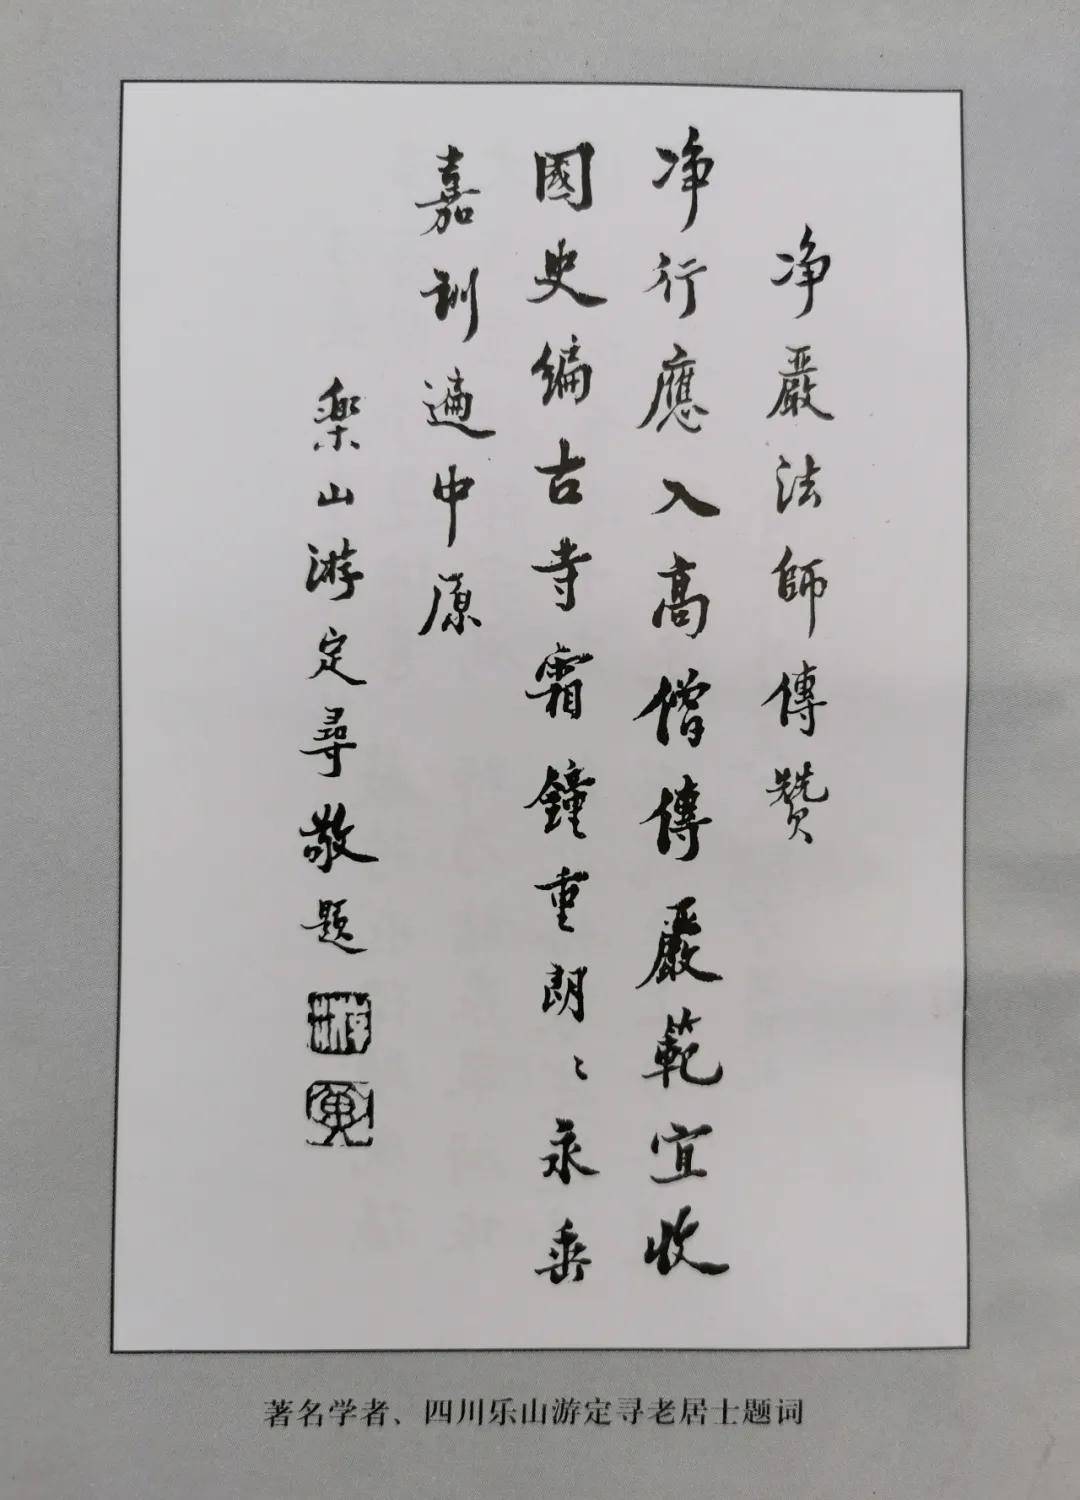 净嚴法師傳贊
净行應入高僧傳嚴範宜收
國史編古寺霜鐘重朗〻永垂
嘉訓遍中原
樂山游定尋敬題
著名学者、四川乐山游定寻老居士题词